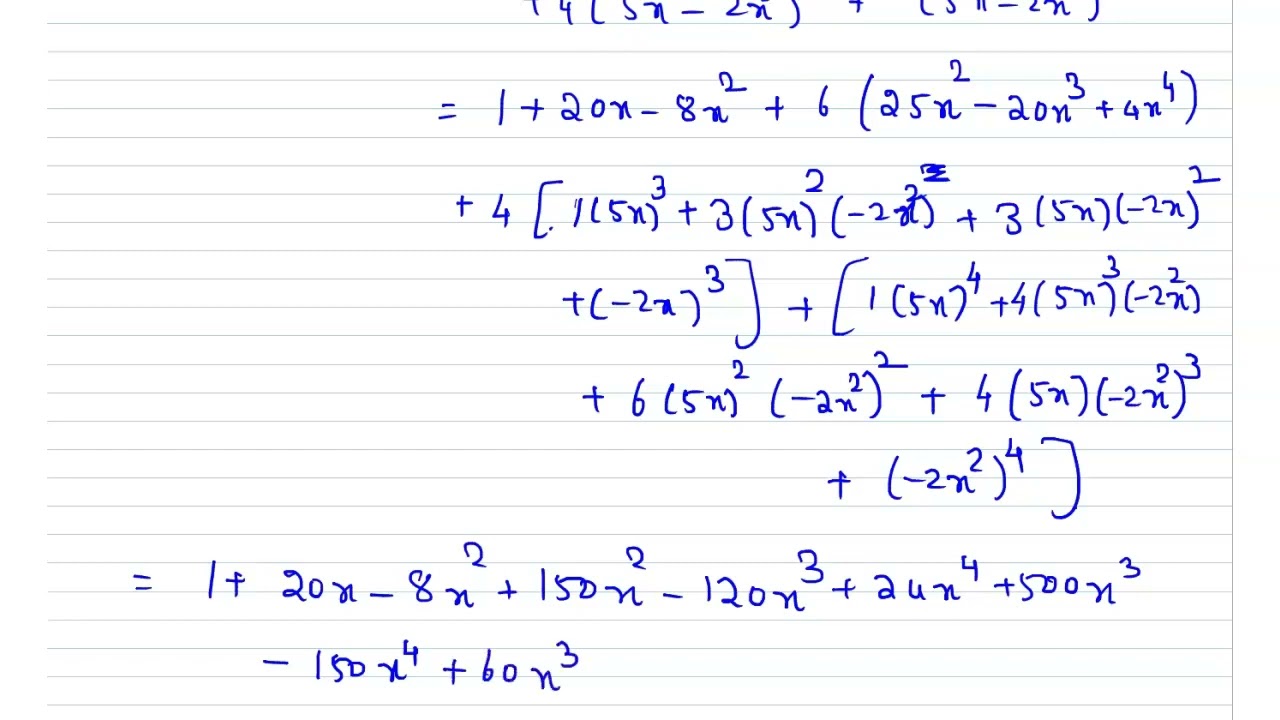 +4(5x - 2x ) + (5x - 2x )
= 1 + 20x - 8x² + 6 (25x² - 20x³ + 4x⁴)
+ 4 [ 1(5x)³ + 3(5x)² (-2x²) + 3 (5x) (-2x)²
+ (-2x)³ ] + [ 1(5x)⁴ + 4(5x)³ (-2x²)
+ 6 (5x)² (-2x²)² + 4 (5x) (-2x²)³
+ (-2x²)⁴ ]
= 1 + 20x - 8x² + 150x² - 120x³ + 24x⁴ + 500x³
- 150x⁴ + 60x³